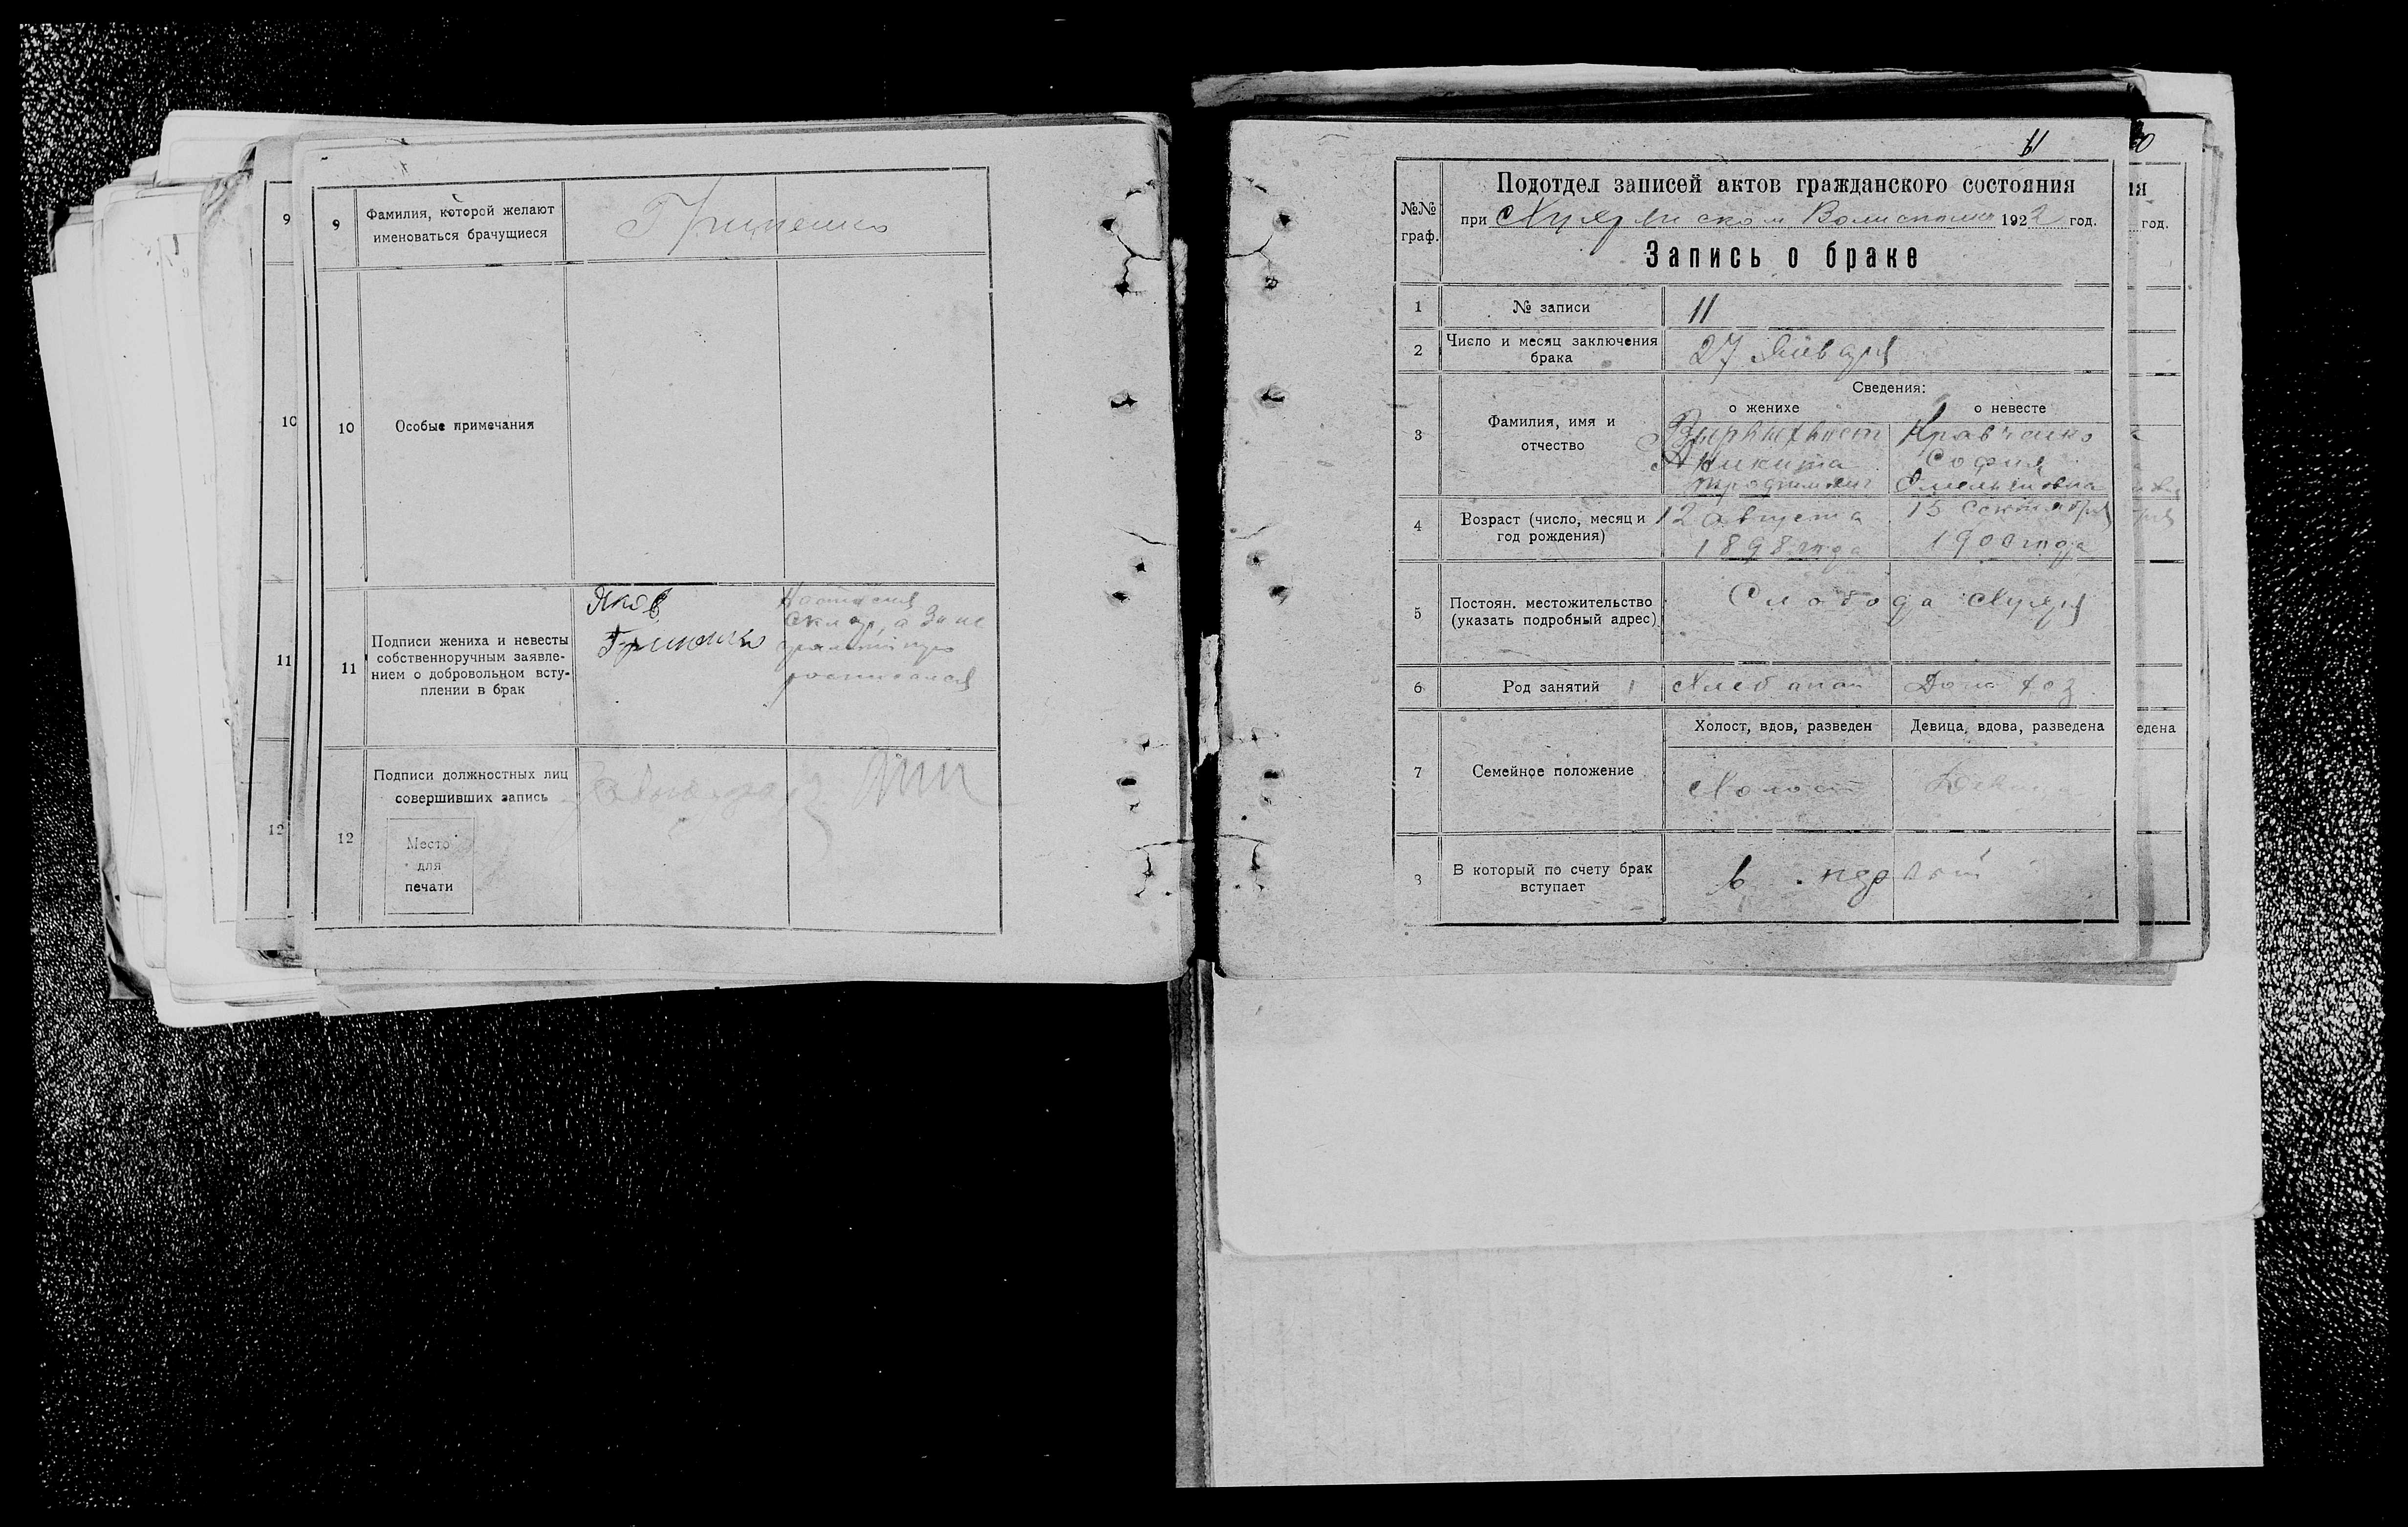 9
10
11
12
9
Фамилия, которой желают
именоваться брачущиеся
Гриценко
10
Особые примечания
11
Подписи жениха и невесты
собственноручным заявле-
нием о добровольном всту-
плении в брак
Яков
Гриценко
росписался
12
Подписи должностных лиц
совершивших запись
Место
для
печати
11
№№
граф.
Подотдел записей актов гражданского состояния
при 1922 год.
Запись о браке
1
№ записи
11
2
Число и месяц заключения
брака
27 Января
Сведения:
о женихе
о невесте
3
Фамилия, имя и
отчество
Никита
Трофимович
Кравченко
София
Омельяновна
4
Возраст (число, месяц и
год рождения)
12 августа
1898 года
15 сентября
1900 года
5
Постоян. местожительство
(указать подробный адрес)
Слобода
6
Род занятий
Хлебопаш
Дома хоз
Холост, вдов, разведен
Девица, вдова, разведена
7
Семейное положение
Холост
Девица
8
В который по счету брак
вступает
в первый
ия
год.
едена